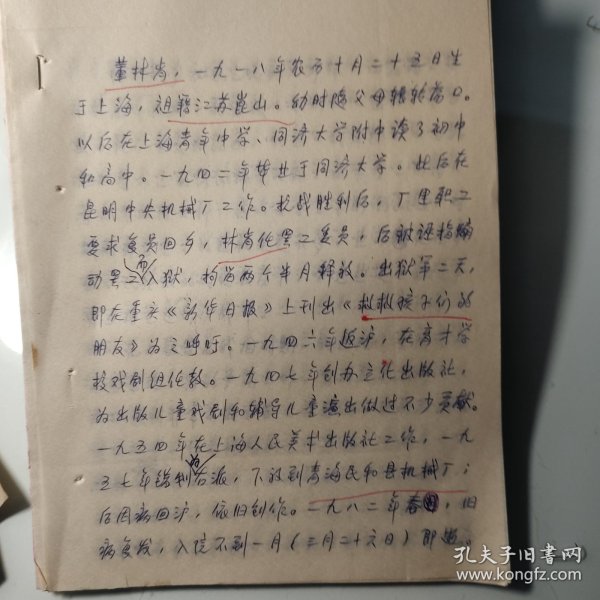 董林肯，一九一八年农历十月二十五日生
于上海，祖籍江苏崑山。幼时随父母辗转
以后在上海青年中学、同济大学附中读了初中
和高中。一九四二年毕业于同济大学。此后在
昆明中央机械厂工作。抗战胜利后，厂里职工
要求复员回乡，林肯任罢工委员，后被诬指煽
动罢工而入狱，拘留两个半月释放。出狱第二天，
即在重庆《新华日报》上刊出《救救孩子们的
朋友》为之呼吁。一九四六年返沪，在育才学
校戏剧组任教。一九四七年创办立化出版社，
为出版儿童戏剧和辅导儿童演出做过不少贡献。
一九五四年在上海人民美术出版社工作，一九
五七年错划为右派，下放到青海民和县机械厂；
后因病回沪，依旧创作。一九八二年春，旧
病复发，入院不到一月（三月二十六日）即逝。
孔夫子旧书网
www.kongfz.com